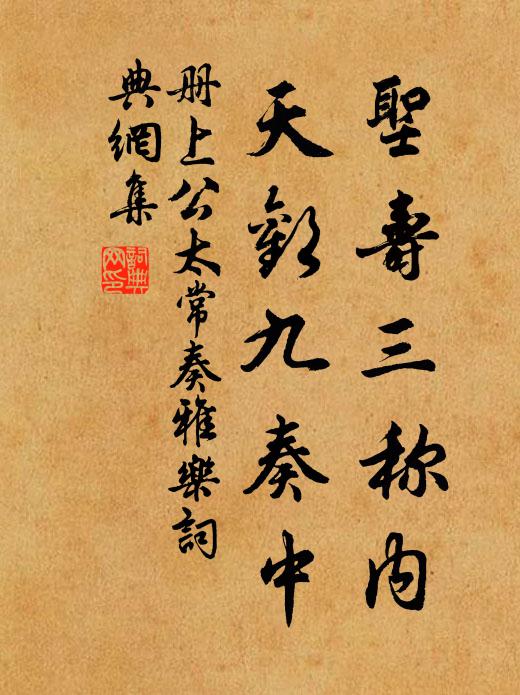 聖壽三称内
天歡九奏中
册上公太常奏雅樂詞
典網集
詞典
网印